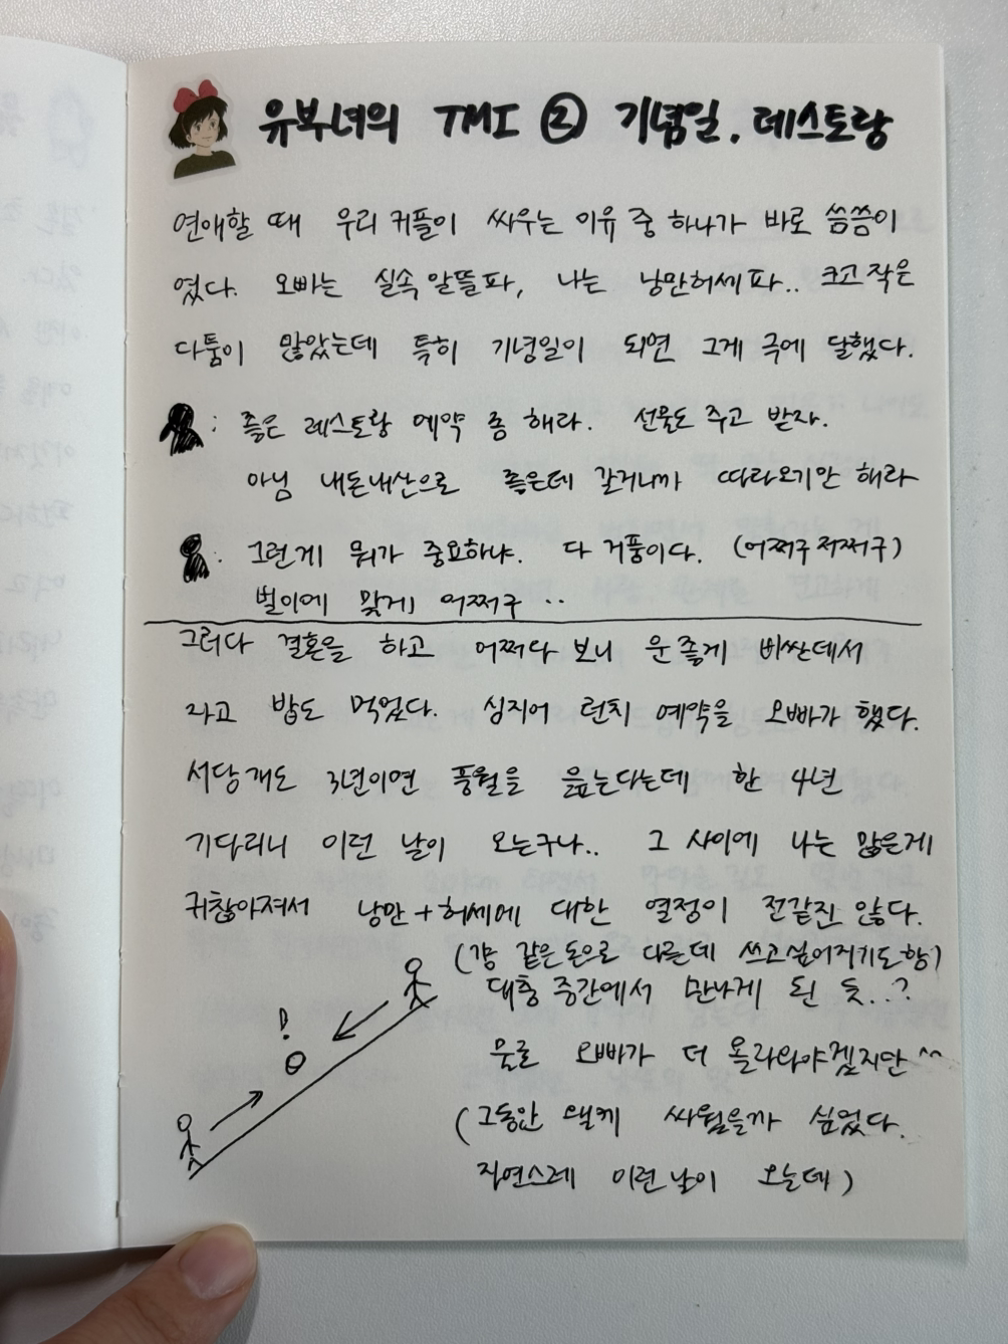 유부녀의 TMI ② 기념일, 레스토랑
연애할 때 우리 커플이 싸우는 이유 중 하나가 바로 씀씀이
였다. 오빠는 실속알뜰파, 나는 낭만허세파.. 크고 작은
다툼이 많았는데 특히 기념일이 되면 그게 극에 달했다.
: 좋은 레스토랑 예약 좀 해라. 선물도 주고 받자.
아님 내돈내산으로 좋은데 갈거니까 따라오기만 해라
: 그런게 뭐가 중요하냐. 다 거품이다. (어쩌구저쩌구)
벌이에 맞게 어쩌구 ..
그러다 결혼을 하고 어쩌다 보니 운좋게 비싼데서
자고 밥도 먹었다. 심지어 런치 예약을 오빠가 했다.
서당개도 3년이면 풍월을 읊는다는데 한 4년
기다리니 이런 날이 오는구나.. 그 사이에 나는 많은게
귀찮아져서 낭만+허세에 대한 열정이 전같진 않다.
(걍 같은돈으로 다른데 쓰고싶어지기도함)
대충 중간에서 만나게 된 듯..?
물론 오빠가 더 올라와야겠지만^^
!
(그동안 왤케 싸웠을까 싶었다.
자연스레 이런날이 오는데)